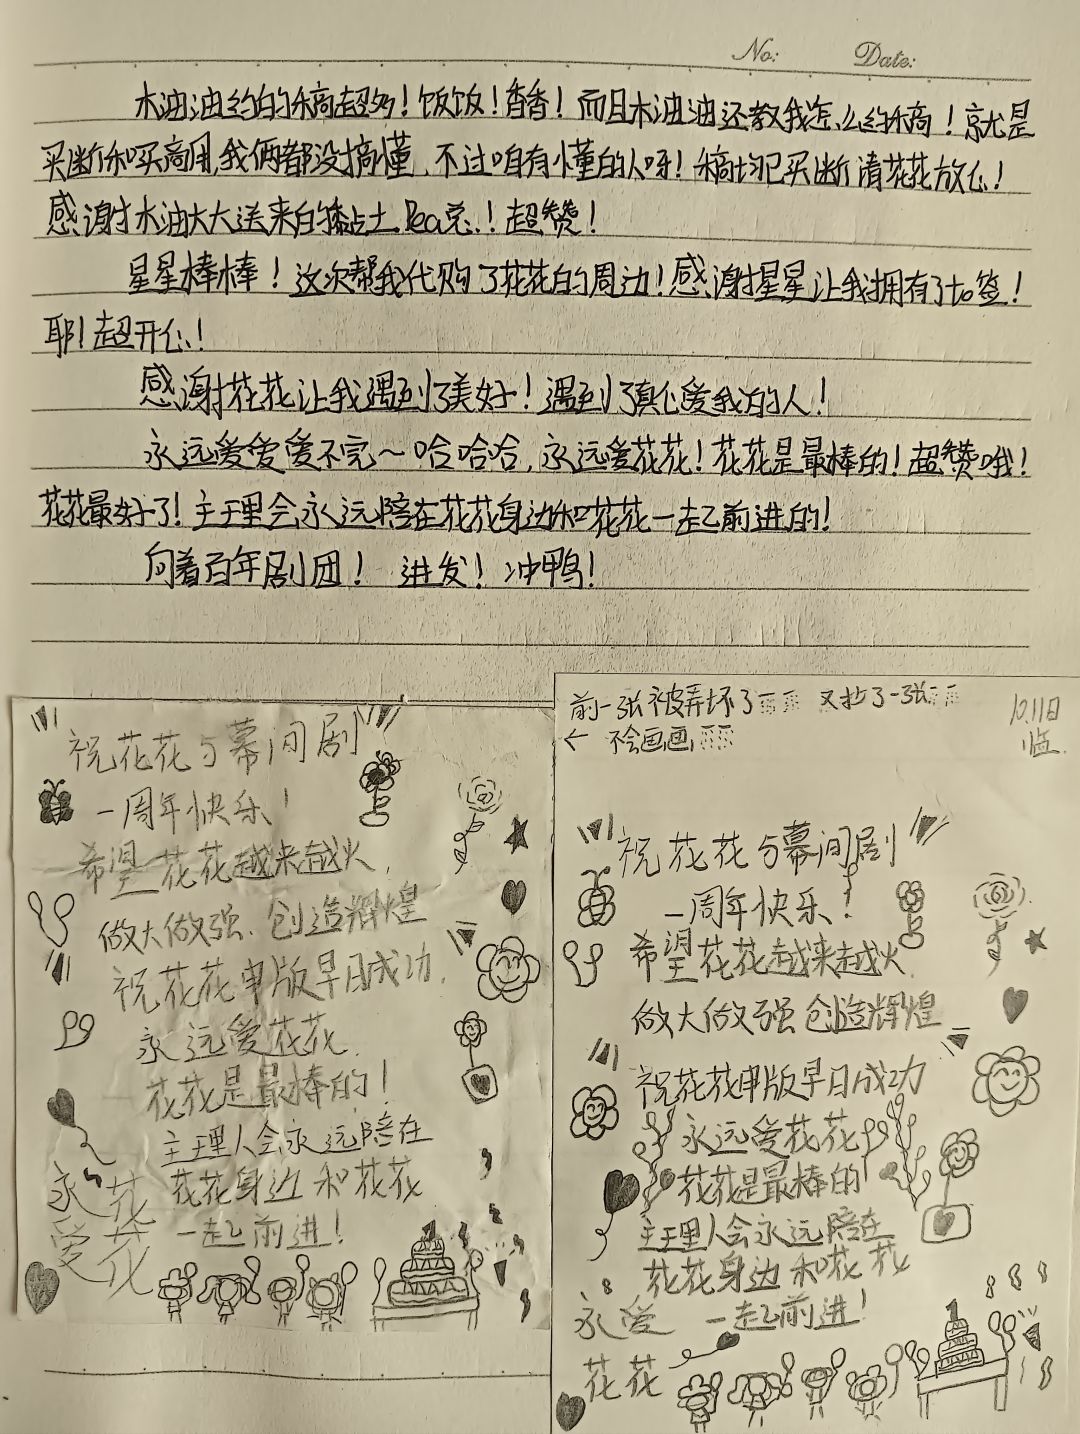 No: Date:
木油油约的稿超多！饭饭！香香！而且木油油还教我怎么约稿！就是
买断和买商用，我俩都没搞懂，不过咱有小懂的人呀！稿均已买断请花花放心！
感谢木油大大送来的黏土Rea兑！超赞！
星星棒棒！这次帮我代购了花花的周边！感谢星星让我拥有了to签！
耶！超开心！
感谢花花让我遇到了美好！遇到了真心爱我的人！
永远爱爱爱不完～哈哈哈，永远爱花花！花花是最棒的！超赞哦！
花花最好了！主理会永远陪在花花身边和花花一起前进的！
向着百年剧团！进发！冲鸭！
祝花花与幕间剧
一周年快乐！
希望花花越来越火，
做大做强、创造辉煌
祝花花申版早日成功，
永远爱花花，
花花是最棒的！
主理人会永远陪在
花花身边 和花花
一起前进！
永花
爱花
前一张被弄坏了 又抄了一张
← 不会画画，
10.11日
临
祝花花与幕间剧
一周年快乐！
希望花花越来越火，
做大做强 创造辉煌
祝花花申版早日成功
永远爱花花
花花是最棒的！
主理人会永远陪在
花花身边 和花花
一起前进！
永爱
花花